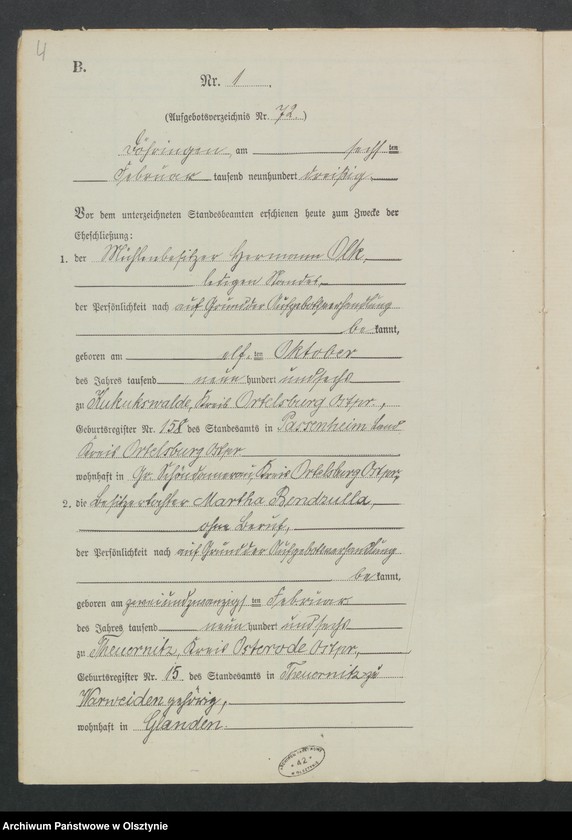 4
B.
Nr. 1.
(Aufgebotsverzeichnis Nr. 72.)
Döhringen, am sechsten
Februar tausend neunhundert dreißig.
Vor dem unterzeichneten Standesbeamten erschienen heute zum Zwecke der
Eheschließung:
1. der Mühlenbesitzer Hermann Olk,
ledigen Standes,
der Persönlichkeit nach auf Grund der Aufgebotsverhandlung
be kannt,
geboren am elften Oktober
des Jahres tausend neun hundert und sechs
zu Kukukswalde, Kreis Ortelsburg Ostpr.,
Geburtsregister Nr. 158 des Standesamts in Passenheim Land
Kreis Ortelsburg Ostpr
wohnhaft in Gr. Schöndamerau, Kreis Ortelsburg Ostpr,
2. die Besitzertochter Martha Bendzulla,
ohne Beruf,
der Persönlichkeit nach auf Grund der Aufgebotsverhandlung
be kannt,
geboren am zweiundzwanzigsten Februar
des Jahres tausend neun hundert und sechs
zu Theuernitz, Kreis Osterode Ostpr,
Geburtsregister Nr. 15 des Standesamts in Theuernitz zu
Warweiden gehörig,
wohnhaft in Glanden.
* 42 *
Archiwum Państwowe w Olsztynie